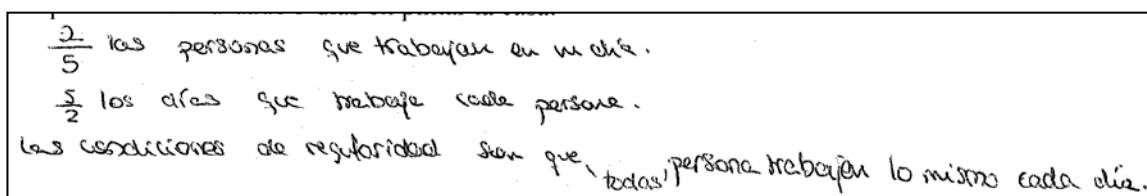 2/5 las personas que trabajan en un día.
5/2 los días que trabaja cada persona.
Las condiciones de regularidad son que todas persona trabajan lo mismo cada día.